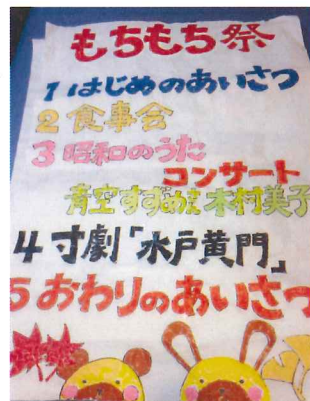 もちもち祭
1はじめのあいさつ
2食事会
3昭和のうた
コンサート
青空すずめ 木村美子
4寸劇「水戸黄門」
5おわりのあいさつ